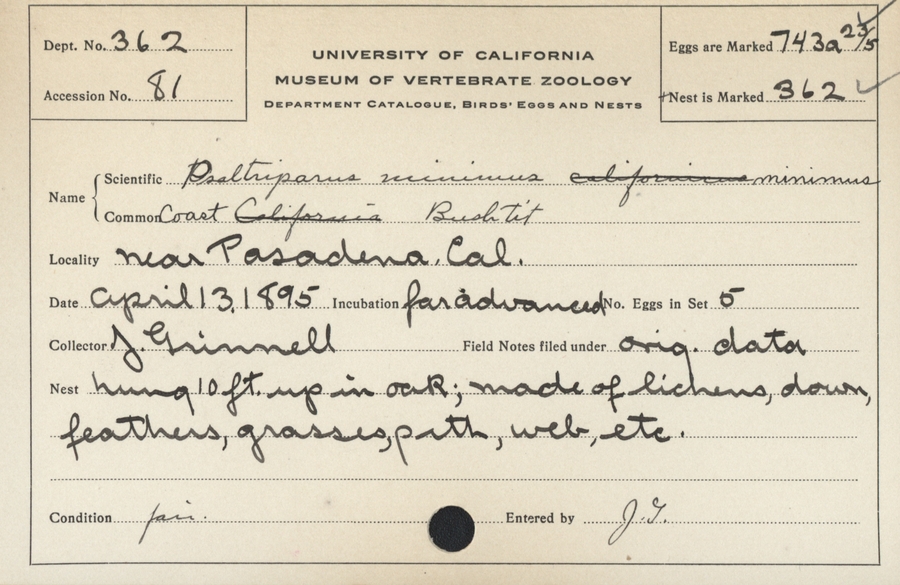 Dept. No. 362
Accession No. 81
UNIVERSITY OF CALIFORNIA
MUSEUM OF VERTEBRATE ZOOLOGY
DEPARTMENT CATALOGUE, BIRDS' EGGS AND NESTS
Eggs are Marked 743a 23/5
+Nest is Marked 362
Name
Scientific Psaltriparus minimus californicus minimus
Common Coast California Bushtit
Locality near Pasadena, Cal.
Date april 13, 1895 Incubation far advanced No. Eggs in Set 5
Collector J. Grinnell Field Notes filed under orig. data
Nest hung 10 ft. up in oak; made of lichens, down,
feathers, grasses, pith, web, etc.
Condition fair. Entered by J.G.